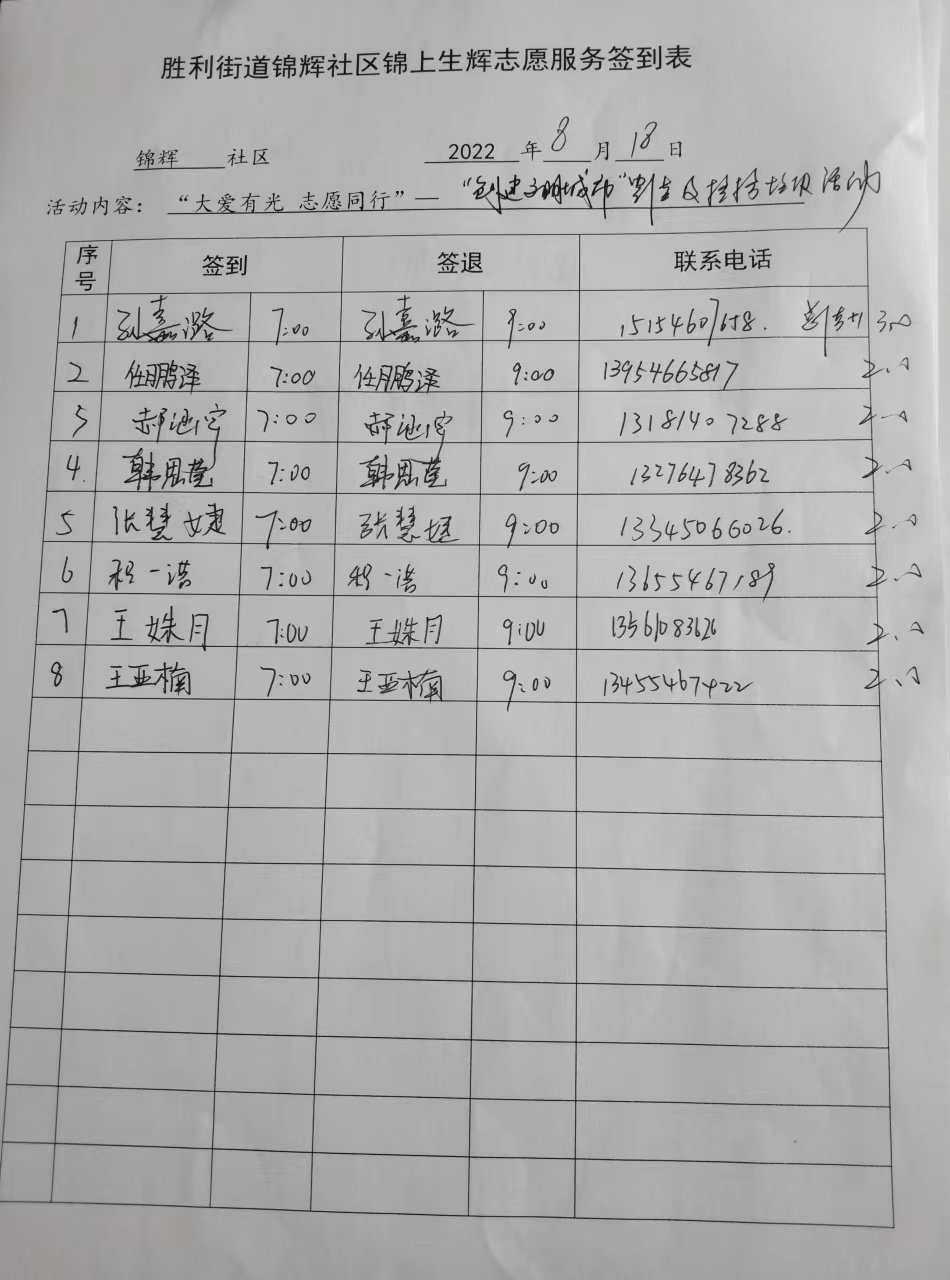 胜利街道锦辉社区锦上生辉志愿服务签到表
锦辉 社区 2022 年 8 月 18 日
活动内容： “大爱有光 志愿同行”— “创建文明城市”割草及捡拾垃圾活动
序号 签到 签退 联系电话
1 孙嘉潞 7:00 孙嘉潞 9:00 15154607658. 3.0
2 任鹏泽 7:00 任鹏泽 9:00 13954665817 2.0
3 郝涵宇 7:00 郝涵宇 9:00 13181407288 2.0
4. 韩思莹 7:00 韩思莹 9:00 13276478362 2.0
5 张慧婕 7:00 张慧婕 9:00 13345066026. 2.0
6 程一浩 7:00 程一浩 9:00 13655467189 2.0
7 王姝月 7:00 王姝月 9:00 13561083626 2.0
8 王亚楠 7:00 王亚楠 9:00 13455467422 2.0